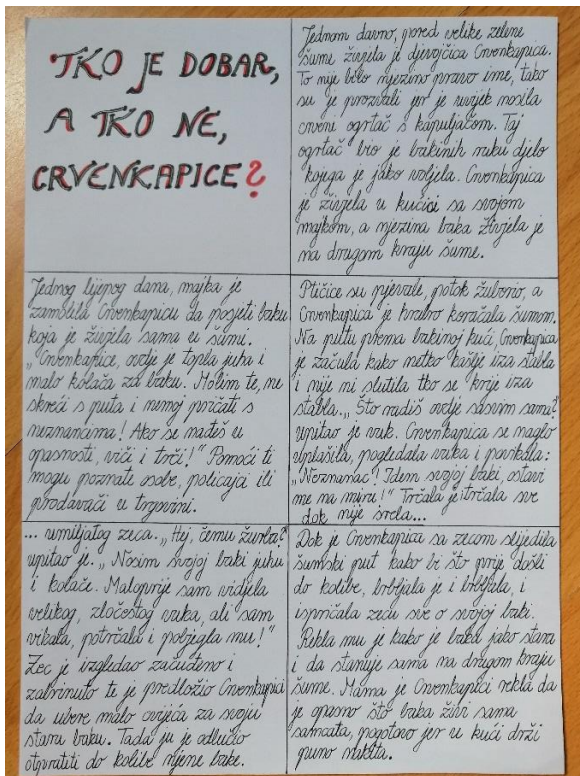 TKO JE DOBAR,
A TKO NE,
CRVENKAPICE?
Jednom davno, pored velike zelene
šume živjela je djevojčica Crvenkapica.
To nije bilo njezino pravo ime, tako
su je prozvali jer je uvijek nosila
crveni ogrtač s kapuljačom. Taj
ogrtač bio je bakinih ruku djelo
kojega je jako voljela. Crvenkapica
je živjela u kućici sa svojom
majkom, a njezina baka živjela je
na drugom kraju šume.
Jednog lijepog dana, majka je
zamolila Crvenkapicu da posjeti baku
koja je živjela sama u šumi.
„Crvenkapice, ovdje je topla juha i
malo kolača za baku. Molim te, ne
skreći s puta i nemoj pričati s
neznancima! Ako se nađeš u
opasnosti, viči i trči!" Pomoći ti
mogu poznate osobe, policajci ili
prodavači u trgovini.
Ptičice su pjevale, potok žuborio, a
Crvenkapica je žurno koračala šumom.
Na putu prema bakinoj kući, Crvenkapica
je začula kako netko kašlje iza stabla
i nije ni slutila tko se krije iza
stabla. „Što radiš ovdje sasvim sama?"
upitao je vuk. Crvenkapica se naglo
uplašila, pogledala vuka i povikala:
„Neznanac! Idem svojoj baki, ostavi
me na miru!" Trčala je i trčala sve
dok nije srela...
... umiljatog zeca. „Hej, čemu žurba?"
upitao je. „Nosim svojoj baki juhu
i kolače. Maloprije sam vidjela
velikog, zločestog vuka, ali sam
vikala, potrčala i pobjegla mu!"
Zec je izgledao začuđeno i
zabrinuto te je predložio Crvenkapici
da ubere malo cvijeća za svoju
staru baku. Tada ju je odlučio
otpratiti do kolibe njene bake.
Dok je Crvenkapica sa zecom slijedila
šumski put kako bi što prije došli
do kolibe, brbljala je i brbljala, i
ispričala zecu sve o svojoj baki.
Rekla mu je kako je baka jako stara
i da stanuje sama na drugom kraju
šume. Mama je Crvenkapici rekla da
je opasno što baka živi sama
samcata, pogotovo jer u kući drži
puno nakita.